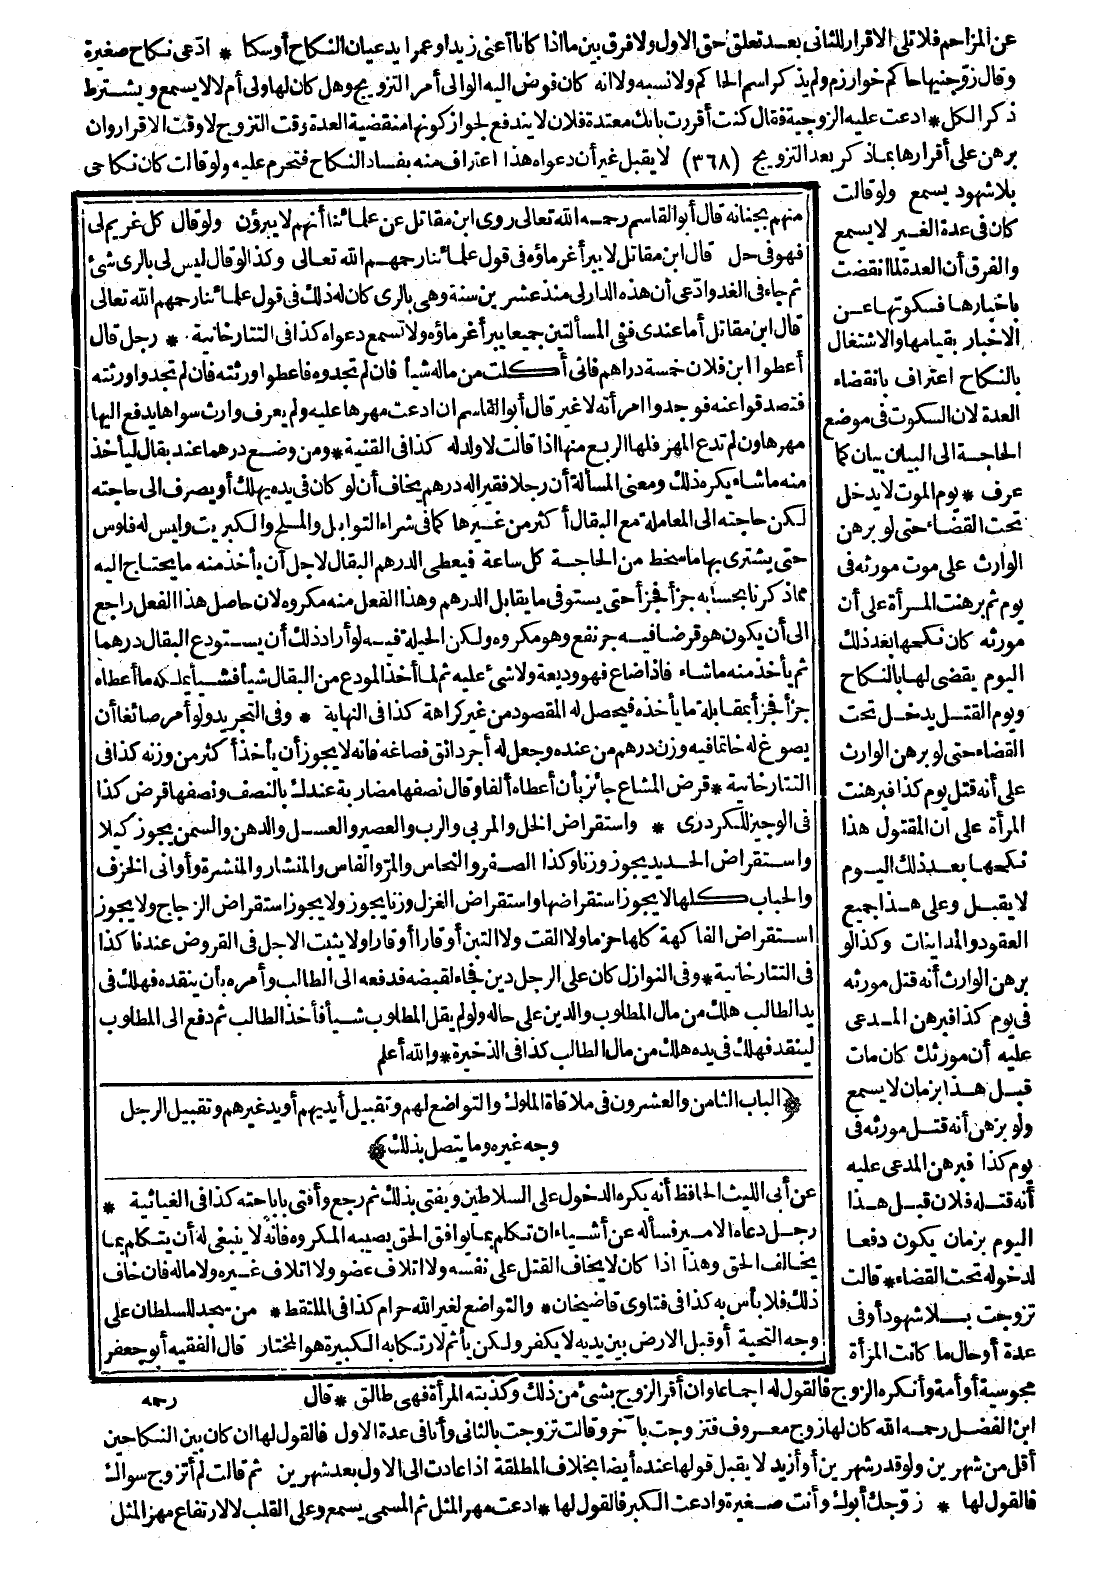 عن المزاحم فلا تلي الاقرار للثاني بعد تعلق حق الاول ولا فرق بين ما اذا كانا أعني زيدا وعمرا يدعيان النكاح أو سكتا * ادّعى نكاح صغيرة
وقال زوّجنيها حاكم خوارزم ولم يذكر اسم الحاكم ولا نسبه ولا انه كان فوّض اليه الوالي أمر التزويج وهل كان لها ولي أم لا لا يسمع ويشترط
ذكر الكل * ادعت عليه الزوجية فقال كنت أقررت بانك معتدة فلان لا يندفع لجواز كونها منقضية العدة وقت التزوج لا وقت الاقرار وان
برهن على أقرارها بما ذكر بعد التزويج (٣٦٨) لا يقبل غير أن دعواه هذا اعتراف منه بفساد النكاح فتحرم عليه ولو قالت كان نكاحي
بلا شهود يسمع ولو قالت
كان في عدة الغير لا يسمع
والفرق أن العدة لما انقضت
باخبارها فسكوتها عن
الاخبار بقيامها والاشتغال
بالنكاح اعتراف بانقضاء
العدة لان السكوت في موضع
الحاجة الى البيان بيان كما
عرف * يوم الموت لا يدخل
تحت القضاء حتى لو برهن
الوارث على موت مورثه في
يوم ثم برهنت المرأة على أن
مورثه كان نكحها بعد ذلك
اليوم يقضى لها بالنكاح
ويوم القتل يدخل تحت
القضاء حتى لو برهن الوارث
على أنه قتل يوم كذا فبرهنت
المرأة على ان المقتول هذا
نكحها بعد ذلك اليوم
لا يقبل وعلى هذا جميع
العقود والمداينات وكذا لو
برهن الوارث أنه قتل مورثه
في يوم كذا فبرهن المدعى
عليه أن مورثك كان مات
قبل هذا بزمان لا يسمع
ولو برهن أنه قتل مورثه في
يوم كذا فبرهن المدعى عليه
أنه قتله فلان قبل هذا
اليوم بزمان يكون دفعا
لدخوله تحت القضاء * قالت
تزوجت بلا شهود أو في
عدة أو حال ما كانت المرأة
منهم بجنانه قال أبو القاسم رحمه الله تعالى روى ابن مقاتل عن علمائنا أنهم لا يبرؤن ولو قال كل غريم لي
فهو في حل قال ابن مقاتل لا يبرأ غرماؤه في قول علمائنا رحمهم الله تعالى وكذا لو قال ليس لي بالري شئ
ثم جاء في الغد وادّعى أن هذه الدار لي منذ عشرين سنة وهي بالري كان له ذلك في قول علمائنا رحمهم الله تعالى
قال ابن مقاتل أما عندي ففي المسألتين جميعا يبرأ غرماؤه ولا تسمع دعواه كذا في التتارخانية * رجل قال
أعطوا ابن فلان خمسة دراهم فاني أكلت من ماله شيأ فان لم تجدوه فاعطوا ورثته فان لم تجدوا ورثته
فتصدقوا عنه فوجدوا امرأته لا غير قال أبو القاسم ان ادعت مهرها عليه ولم يعرف وارث سواها يدفع اليها
مهرها وان لم تدع المهر فلها الربع منها اذا قالت لا ولد له كذا في القنية * ومن وضع درهما عند بقال ليأخذ
منه ما شاء يكره ذلك ومعنى المسألة أن رجلا فقيرا له درهم يخاف أن لو كان في يده يهلك أو يصرف الى حاجته
لكن حاجته الى المعاملة مع البقال أكثر من غيرها كما في شراء التوابل والملح والكبريت وليس له فلوس
حتى يشتري بها ما سخط من الحاجة كل ساعة فيعطي الدرهم البقال لاجل أن يأخذ منه ما يحتاج اليه
مما ذكرنا بحسابه جزأ فجزأ حتى يستوفي ما يقابل الدرهم وهذا الفعل منه مكروه لان حاصل هذا الفعل راجع
الى أن يكون هو قرضا فيه جر نفع وهو مكروه ولكن الحيلة فيه لو أراد ذلك أن يستودع البقال درهما
ثم يأخذ منه ما شاء فاذا ضاع فهو وديعة ولا شئ عليه ثم لما أخذ المودع من البقال شيأ فشيأ يملكه ما أعطاه
جزأ فجزأ بمقابلة ما يأخذه فيحصل له المقصود من غير كراهة كذا في النهاية * وفي التجريد ولو أمر صائغا أن
يصوغ له خاتما فيه وزن درهم من عنده وجعل له أجر دانق فصاغه فانه لا يجوز أن يأخذ أكثر من وزنه كذا في
التتارخانية * قرض المشاع جائز بأن أعطاه ألفا وقال نصفها مضاربة عندك بالنصف ونصفها قرض كذا
في الوجيز للكردري * واستقراض الخل والمربي والرب والعصير والعسل والدهن والسمن يجوز كيلا
واستقراض الحديد يجوز وزنا وكذا الصفر والنحاس والمرّ والفاس والمنشار والمنشرة وأواني الخزف
والحباب كلها لا يجوز استقراضها واستقراض الغزل وزنا يجوز ولا يجوز استقراض الزجاج ولا يجوز
استقراض الفاكهة كلها حزما ولا القت ولا التبن أوقارا أوقارا ولا يثبت الاجل في القروض عندنا كذا
في التتارخانية * وفي النوازل كان على الرجل دين فجاء لقبضه فدفعه الى الطالب وأمره بأن ينقده فهلك في
يد الطالب هلك من مال المطلوب والدين على حاله ولو لم يقل المطلوب شيأ فأخذ الطالب ثم دفع الى المطلوب
لينقد فهلك في يده هلك من مال الطالب كذا في الذخيرة * والله أعلم
﴿الباب الثامن والعشرون في ملاقاة الملوك والتواضع لهم وتقبيل أيديهم أو يد غيرهم وتقبيل الرجل
وجه غيره وما يتصل بذلك﴾
عن أبي الليث الحافظ أنه يكره الدخول على السلاطين ويفتي بذلك ثم رجع وأفتى باباحته كذا في الغياثية *
رجل دعاه الامير فسأله عن أشياء ان تكلم بما يوافق الحق يصيبه المكروه فانه لا ينبغي له أن يتكلم بما
يخالف الحق وهذا اذا كان لا يخاف القتل على نفسه ولا اتلاف عضو ولا اتلاف غيره ولا ماله فان خاف
ذلك فلا بأس به كذا في فتاوى قاضيخان * والتواضع لغير الله حرام كذا في الملتقط * من سجد للسلطان على
وجه التحية أو قبل الارض بين يديه لا يكفر ولكن يأثم لارتكابه الكبيرة هو المختار قال الفقيه أبو جعفر
مجوسية أو أمة وأنكره الزوج فالقول له اجماعا وان أقر الزوج بشئ من ذلك وكذبته المرأة فهي طالق * قال رحمه
ابن الفضل رحمه الله كان لها زوج معروف فتزوجت بآخر وقالت تزوجت بالثاني وأنا في عدة الاول فالقول لها ان كان بين النكاحين
أقل من شهرين ولو قدر شهرين أو أزيد لا يقبل قولها عنده أيضا بخلاف المطلقة اذا عادت الى الاول بعد شهرين ثم قالت لم أتزوج سواك
فالقول لها * زوّجك أبوك وأنت صغيرة وادعت الكبر فالقول لها * ادعت مهر المثل ثم المسمى يسمع وعلى القلب لا لارتفاع مهر المثل